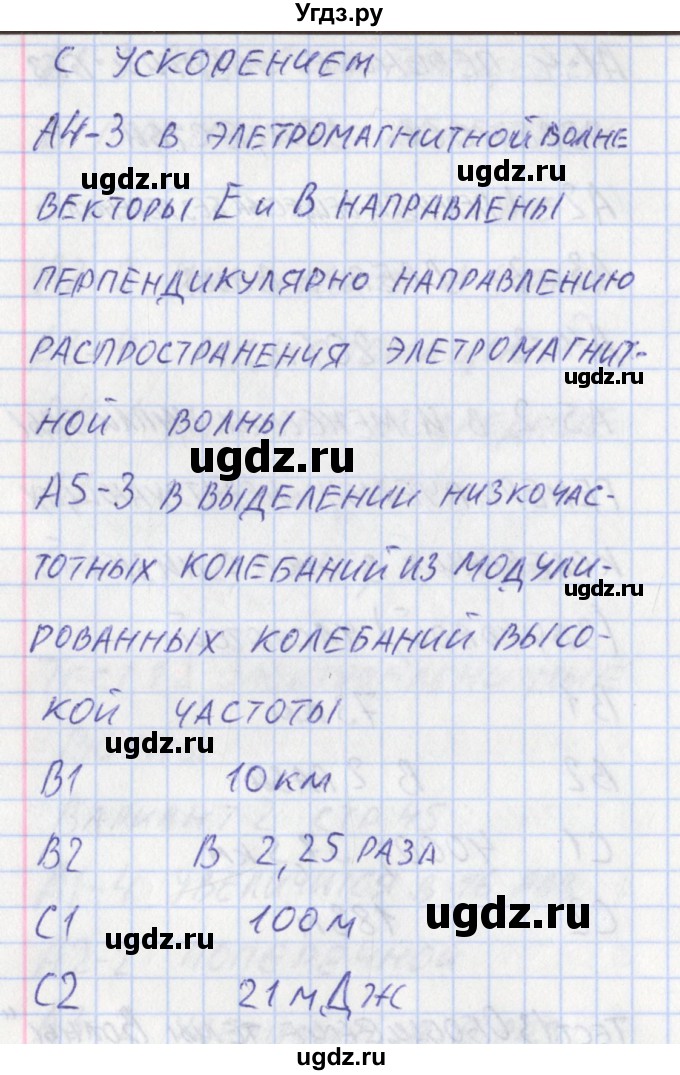 Угдз.ру
С УСКОРЕНИЕМ
А4-3 В ЭЛЕТРОМАГНИТНОЙ ВОЛНЕ
ugdz.ru
ugdz.ru
ВЕКТОРЫ Е и В НАПРАВЛЕНЫ
ПЕРПЕНДИКУЛЯРНО НАПРАВЛЕНИЮ
РАСПРОСТРАНЕНИЯ ЭЛЕТРОМАГНИТ-
ugdz.ru
НОЙ ВОЛНЫ
ugdz.ru
А5-3 В ВЫДЕЛЕНИИ НИЗКОЧАС-
ТОТНЫХ КОЛЕБАНИЙ ИЗ МОДУЛИ-
ugdz.ru
РОВАННЫХ КОЛЕБАНИЙ ВЫСО-
КОЙ ЧАСТОТЫ
ugdz.ru
В1 10 КМ
В2 В 2,25 РАЗА
С1 100 М
ugdz.ru
ugdz.ru
С2 21 мДж
ugdz.ru